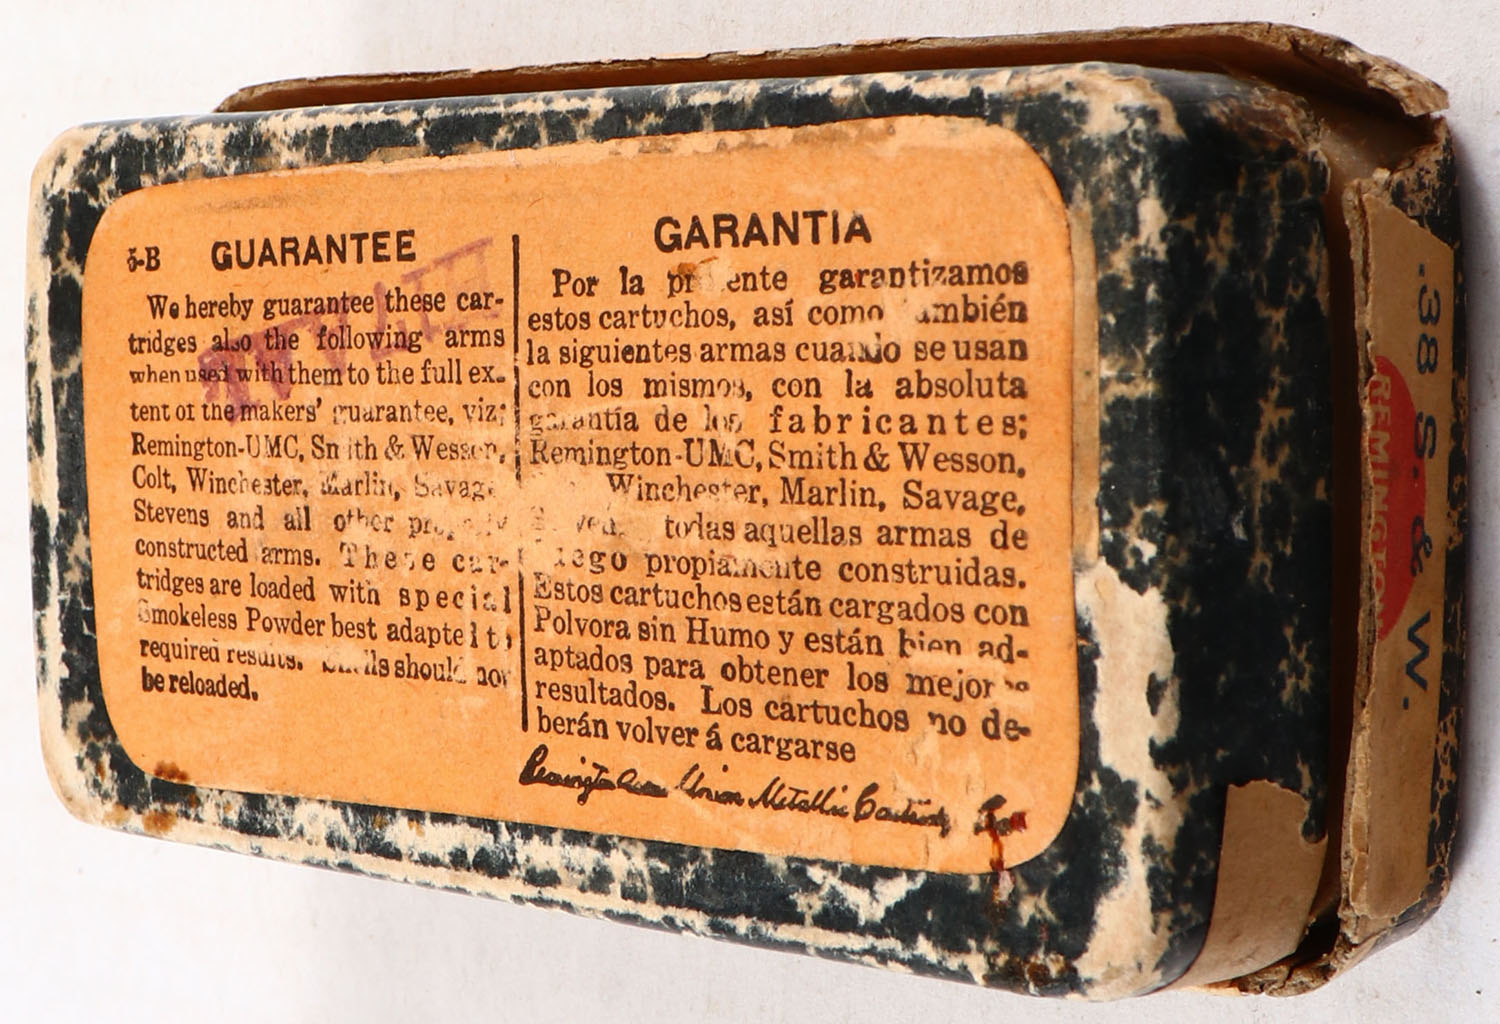 5-B GUARANTEE
We hereby guarantee these car-
tridges also the following arms
when used with them to the full ex-
tent of the makers' guarantee, viz:
Remington-UMC, Smith & Wesson,
Colt, Winchester, Marlin, Savage
Stevens and all other properly
constructed arms. These car-
tridges are loaded with special
Smokeless Powder best adapted to
required results. Shells should not
be reloaded.
GARANTIA
Por la presente garantizamos
estos cartuchos, así como también
la siguientes armas cuando se usan
con los mismos, con la absoluta
garantía de los fabricantes;
Remington-UMC, Smith & Wesson,
Winchester, Marlin, Savage,
todas aquellas armas de
fuego propiamente construidas.
Estos cartuchos están cargados con
Polvora sin Humo y están bien ad-
aptados para obtener los mejores
resultados. Los cartuchos no de-
berán volver á cargarse
Remington Arms Union Metallic Cartridge Co.
.38 S. & W.
REMINGTON